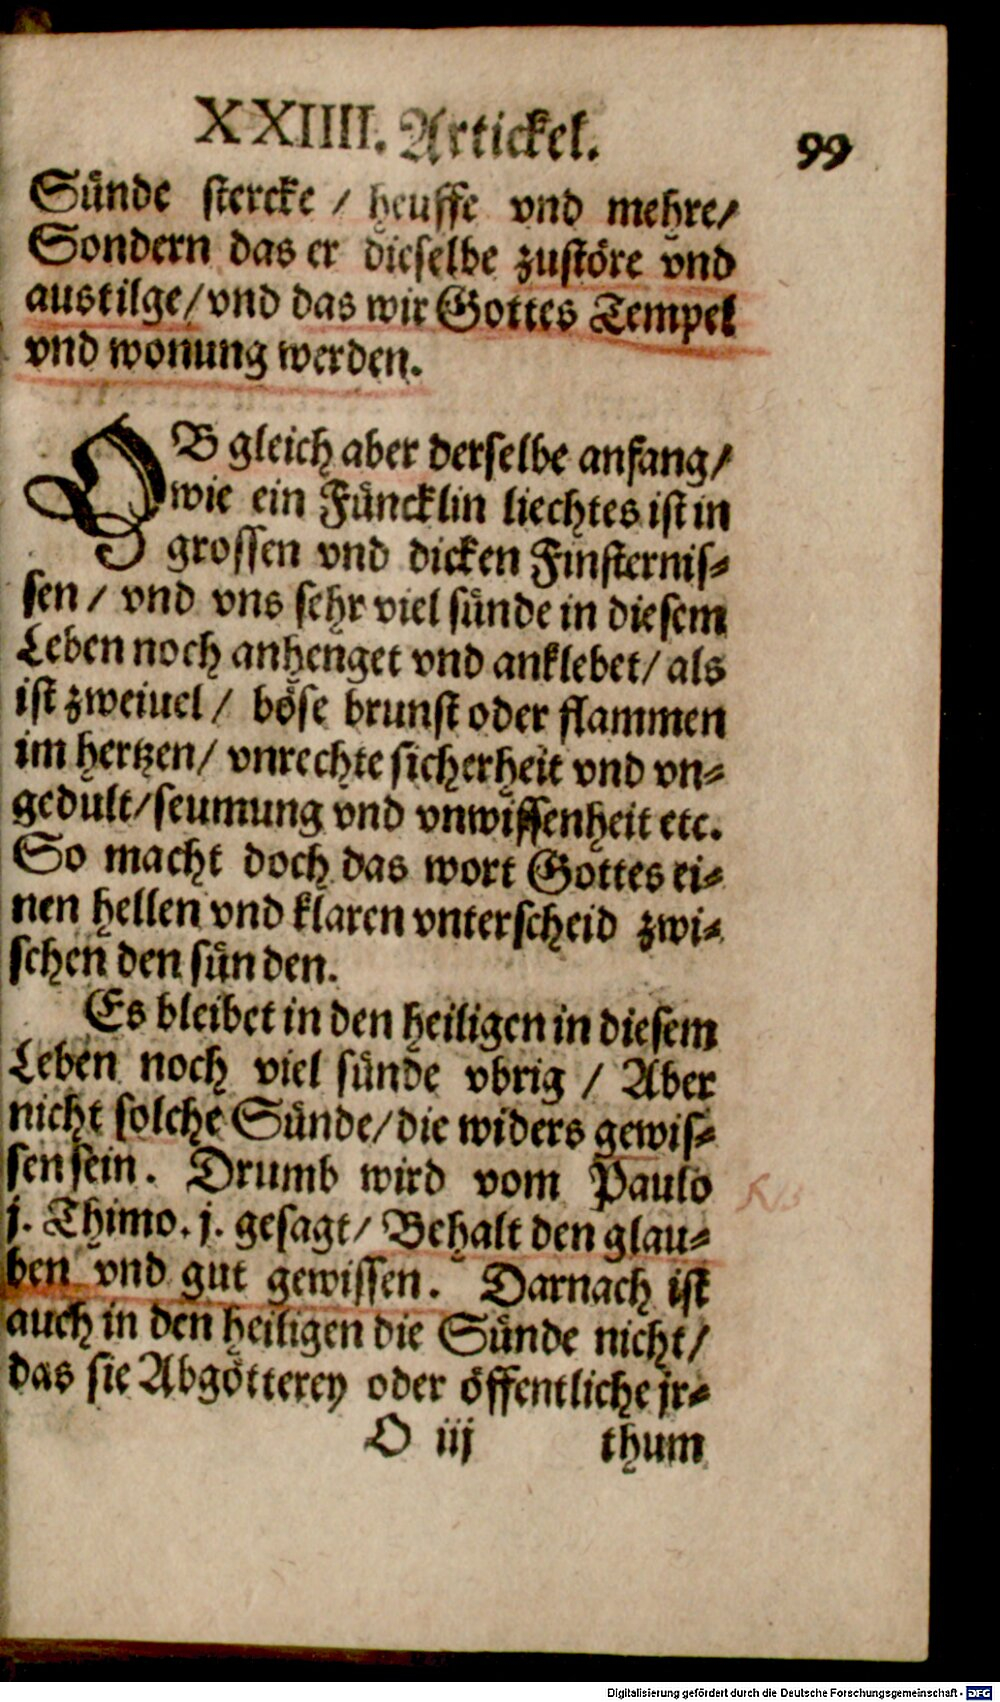 XXIIII. Artickel. 99
Sünde stercke / heuffe vnd mehre/
Sondern das er dieselbe zustöre vnd
austilge/ vnd das wir Gottes Tempel
vnd wonung werden.
OB gleich aber derselbe anfang/
wie ein Füncklin liechtes ist in
grossen vnd dicken Finsternis-
sen / vnd vns sehr viel sünde in diesem
Leben noch anhenget vnd anklebet/ als
ist zweiuel / böse brunst oder flammen
im hertzen/ vnrechte sicherheit vnd vn-
gedult/seumung vnd vnwissenheit etc.
So macht doch das wort Gottes ei-
nen hellen vnd klaren vnterscheid zwi-
schen den sünden.
Es bleibet in den heiligen in diesem
Leben noch viel sünde vbrig / Aber
nicht solche Sünde/ die widers gewis-
sen sein. Drumb wird vom Paulo
j. Thimo. j. gesagt/ Behalt den glau-
ben vnd gut gewissen. Darnach ist
auch in den heiligen die Sünde nicht/
das sie Abgötterey oder öffentliche jr-
O iij thum
Digitalisierung gefördert durch die Deutsche Forschungsgemeinschaft - DFG